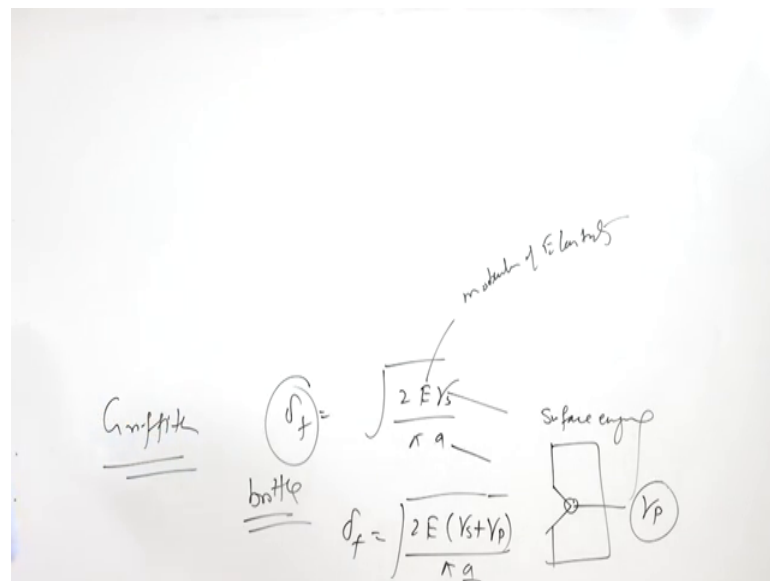 modulus of Elasticity
Griffith σf = √(2 E γs / π a)
Surface energy
brittle
σf = √(2E (γs+γp) / π a)
γp